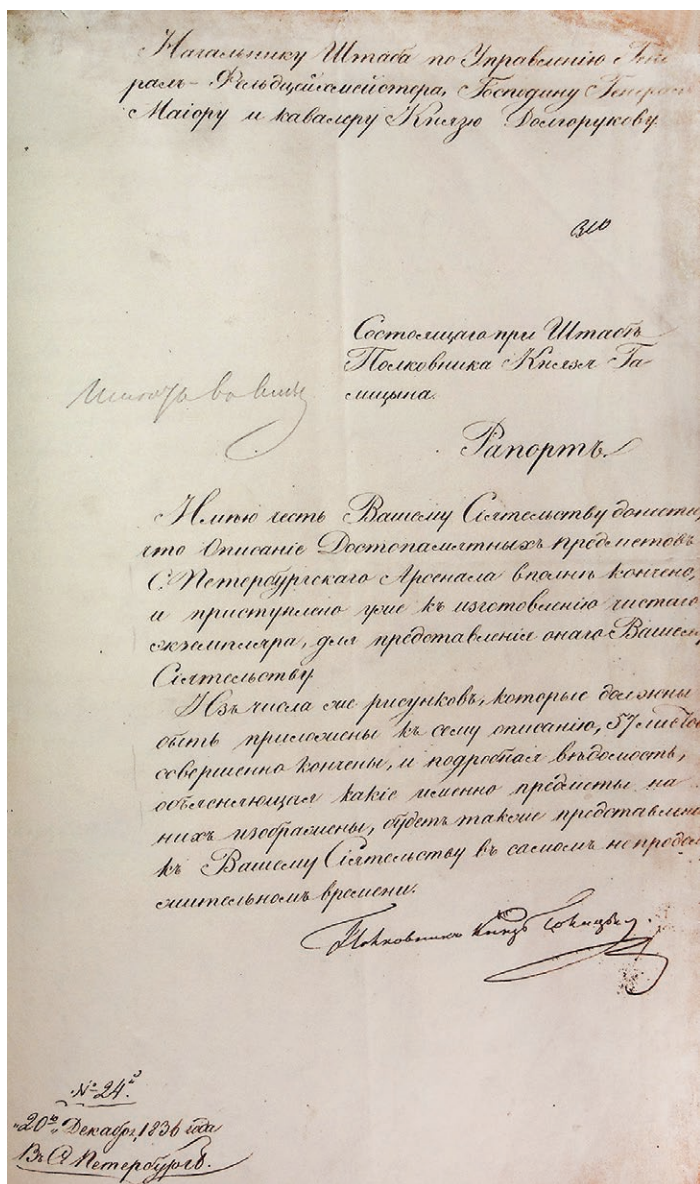 Начальнику Штаба по Управленію Гене
ралъ-Фельдцейхмейстера, Господину Генералъ
Маіору и кавалеру Князю Долгорукову.
Состоящаго при Штабѣ
Полковника Князя Га-
лицына.
Рапортъ.
Имѣю честь Вашему Сіятельству донести,
что Описаніе Достопамятныхъ предметовъ
С. Петербургскаго Арсенала вполнѣ кончено,
и приступлено уже къ изготовленію чистаго
экземпляра, для представленія онаго Вашему
Сіятельству
Изъ числа же рисунковъ, которые должны
быть приложены къ сему описанію, 57 листов
совершенно кончены, и подробная вѣдомость,
объясняющая какіе именно предметы на
нихъ изображены, будетъ также представлена
къ Вашему Сіятельству въ самомъ непродол
жительномъ времени.
Полковникъ Князь Голицынъ.
№ 24й.
"20го" Декабря, 1836 года
Въ С. Петербургѣ.